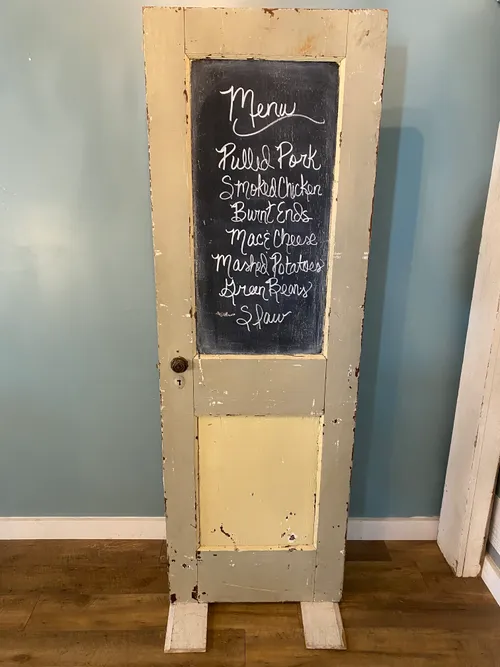 Menu
Pulled Pork
Smoked Chicken
Burnt Ends
Mac & Cheese
Mashed Potatoes
Green Beans
Slaw